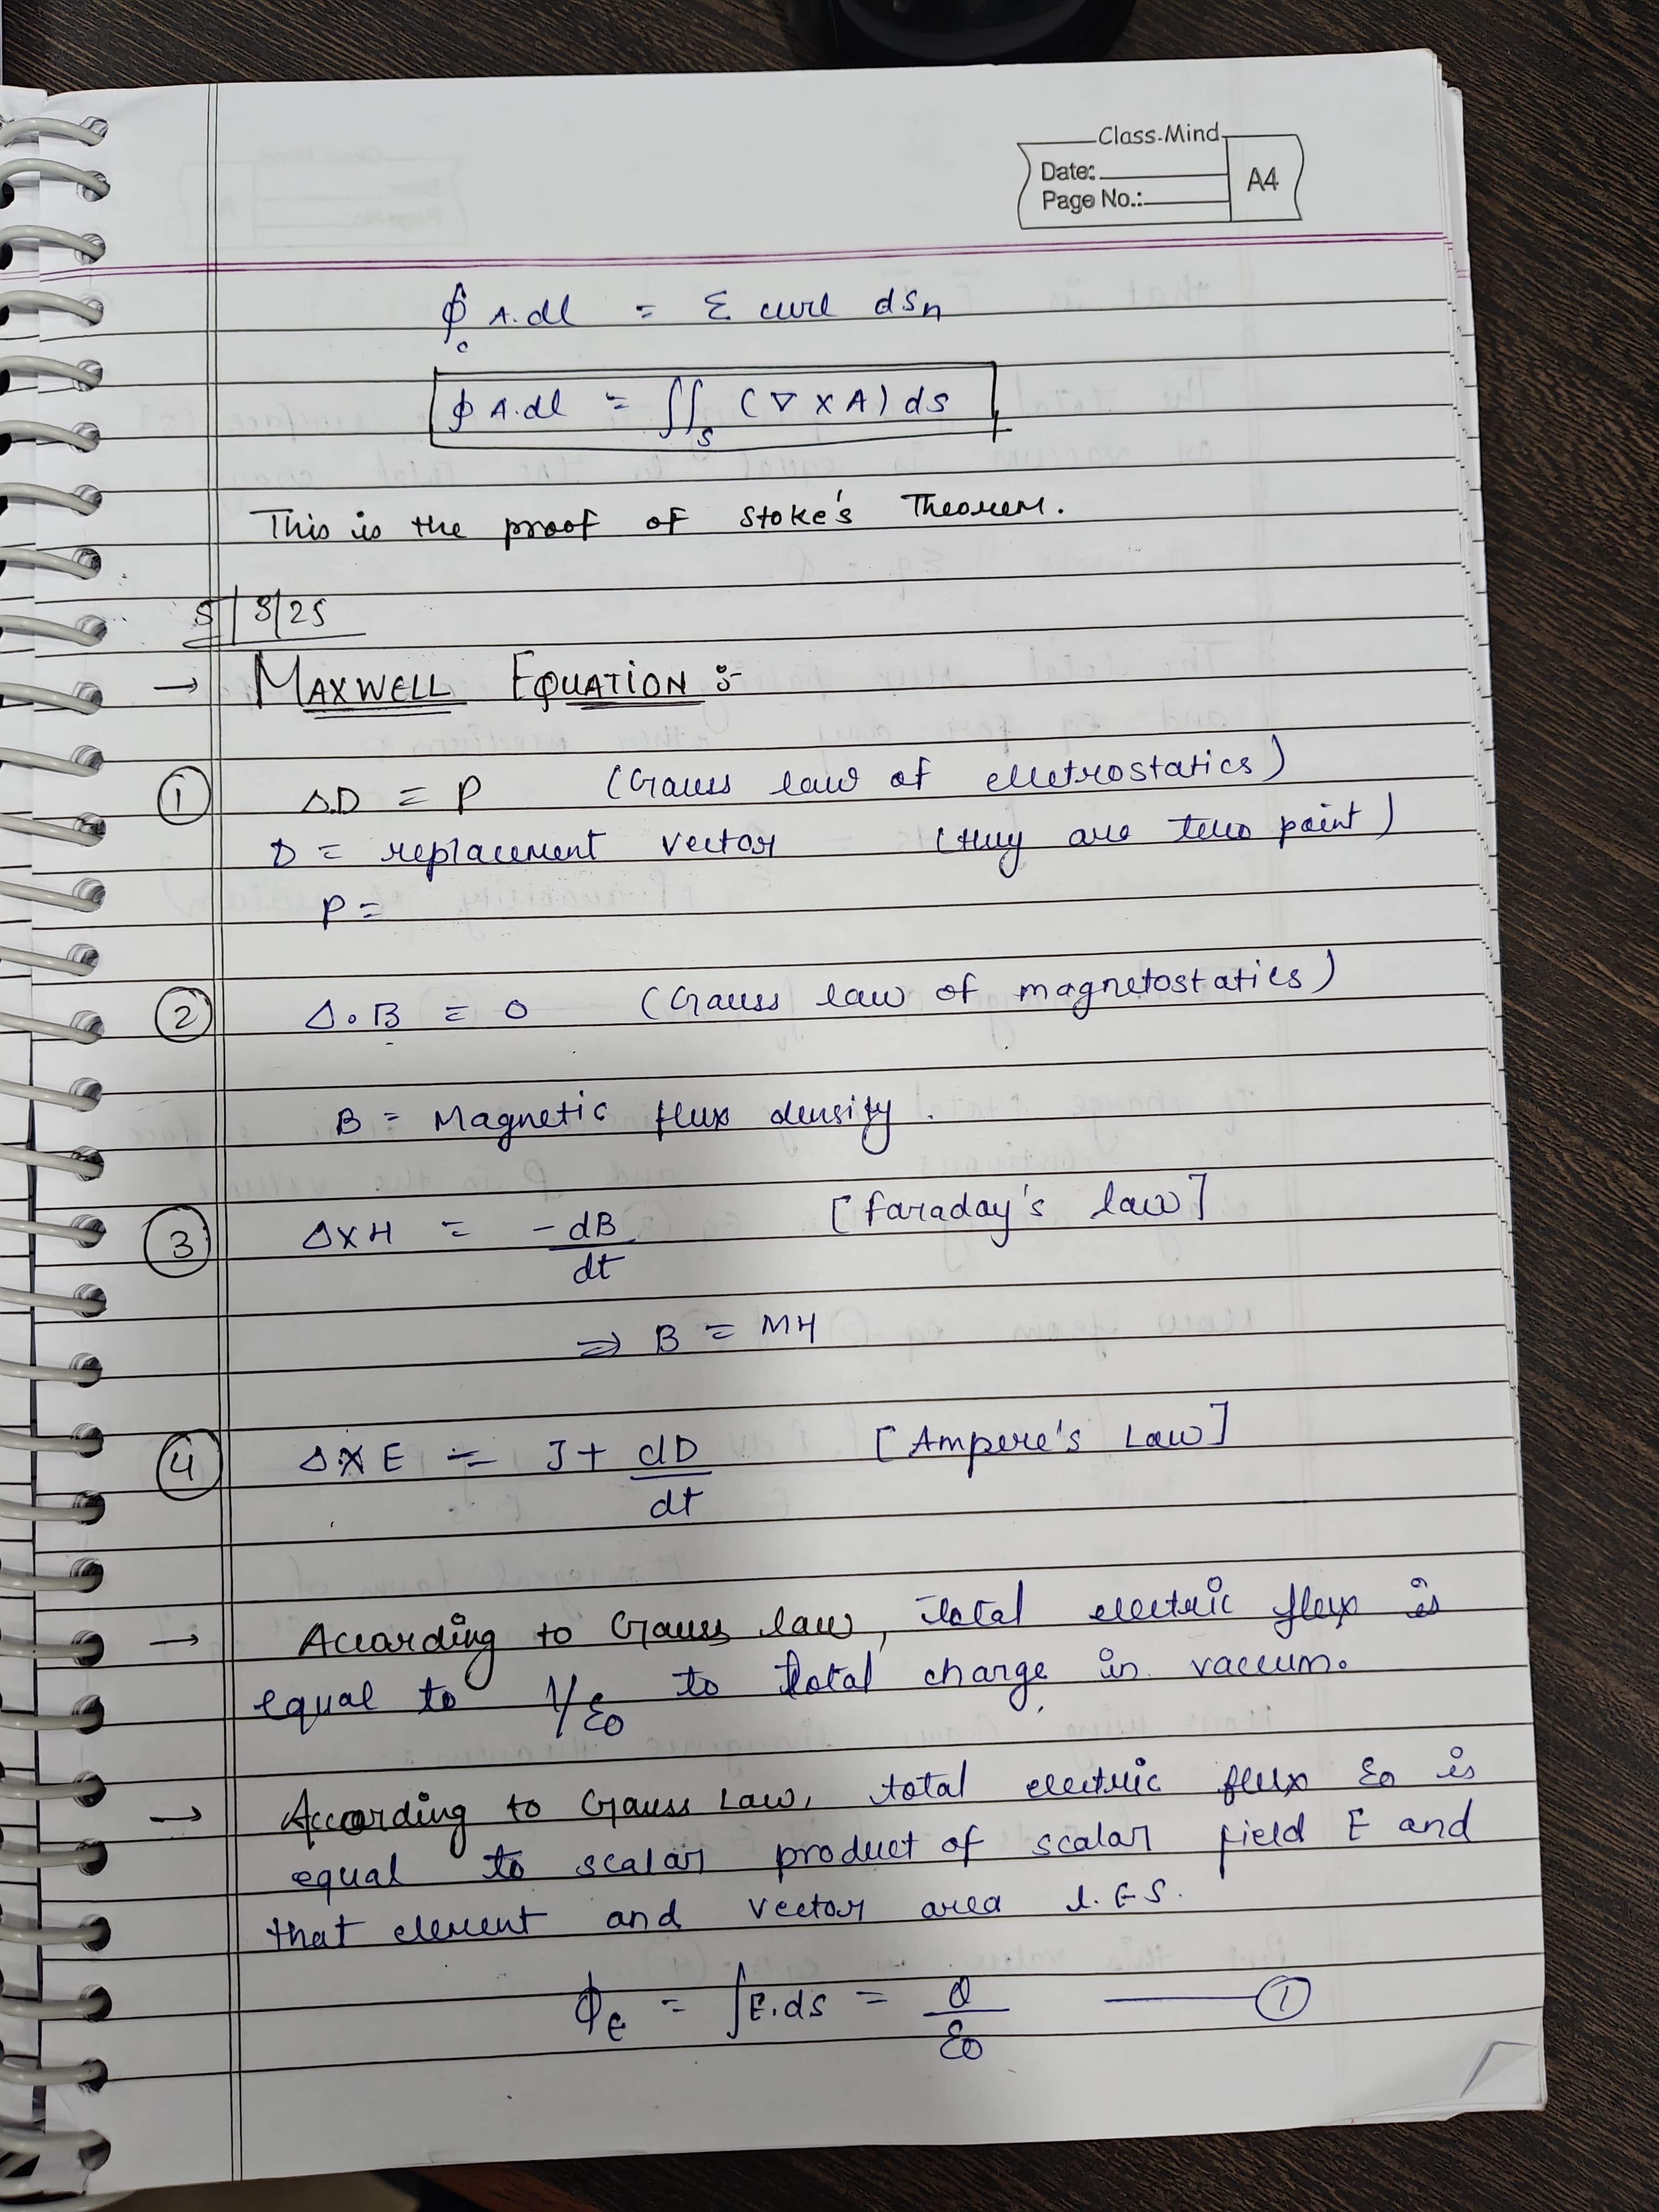 Class-Mind
Date:
Page No.:
A4
∮ A.dl = Σ curl dSn
c
∮ A.dl = ∬s (∇ X A) ds
This is the proof of Stoke's Theorem.
5/3/25
→ MAXWELL EQUATION :-
① Δ.D = P (Gauss law of elletrostatics)
D = replacement vector (they are two point)
P =
② Δ.B = 0 (Gauss law of magnetostatics)
B = Magnetic flux density.
③ ΔXH = -dB/dt [Faraday's law]
⇒ B = MH
④ ΔXE = J + dD/dt [Ampere's Law]
→ According to Gauss law, total electric flux is
equal to 1/ε0 to total charge in vaccum.
→ According to Gauss Law, total electric flux ε0 is
equal to scalar product of scalar field E and
that element and vector area
ϕE = ∫E.ds = Q/ε0 ——— ①